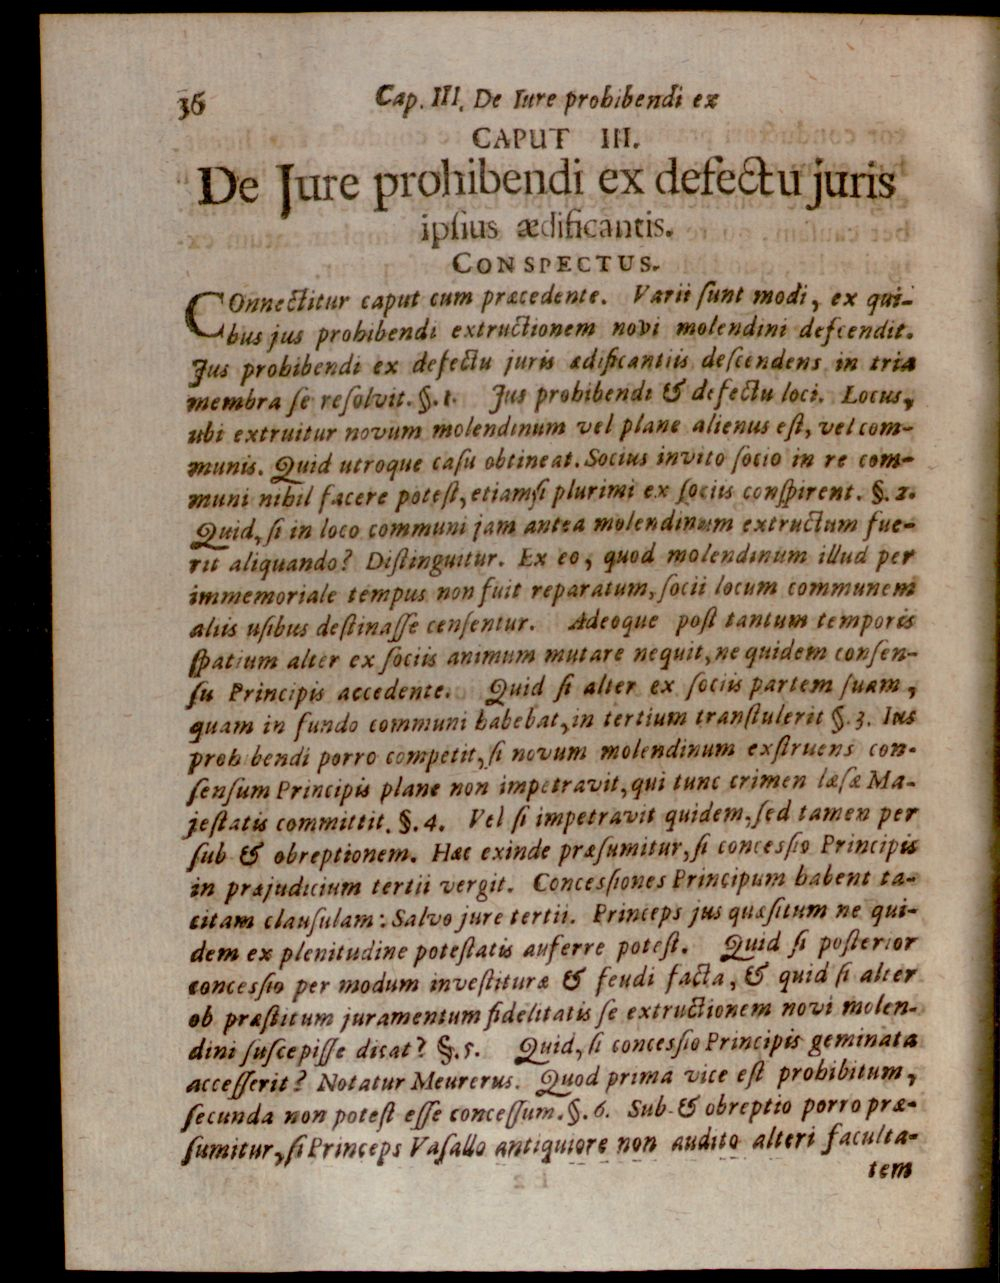 36 Cap. III. De Iure prohibendi ex
CAPUT III.
De Jure prohibendi ex defectu juris
ipſius ædificantis.
CONSPECTUS.
COnnectitur caput cum præcedente. Varii ſunt modi, ex qui-
bus jus prohibendi extructionem novi molendini deſcendit.
Jus prohibendi ex defectu juris ædificantiis deſcendens in tria
membra ſe reſolvit. §. 1. Jus prohibendi & defectu loci. Locus,
ubi extruitur novum molendinum vel plane alienus eſt, vel com-
munis. Quid utroque caſu obtineat. Socius invito ſocio in re com-
muni nihil facere poteſt, etiamſi plurimi ex ſociis conſpirent. §. 2.
Quid, ſi in loco communi jam antea molendinum extructum fue-
rit aliquando? Diſtinguitur. Ex eo, quod molendinum illud per
immemoriale tempus non fuit reparatum, ſocii locum communem
aliis uſibus deſtinaſſe cenſentur. Adeoque poſt tantum temporis
ſpatium alter ex ſociis animum mutare nequit, ne quidem conſen-
ſu Principis accedente. Quid ſi alter ex ſociis partem ſuam,
quam in fundo communi habebat, in tertium tranſtulerit §. 3. Ius
proh bendi porro competit, ſi novum molendinum exſtruens con-
ſenſum Principis plane non impetravit, qui tunc crimen læſæ Ma-
jeſtatis committit. §. 4. Vel ſi impetravit quidem, ſed tamen per
ſub & obreptionem. Hæc exinde præſumitur, ſi conceſſio Principis
in præjudicium tertii vergit. Conceſſiones Principum habent ta-
citam clauſulam: Salvo jure tertii. Princeps jus quæſitum ne qui-
dem ex plenitudine poteſtatis auferre poteſt. Quid ſi poſterior
conceſſio per modum inveſtituræ & feudi facta, & quid ſi alter
ob præſtitum juramentum fidelitatis ſe extructionem novi molen-
dini ſuſcepiſſe dicat? §. 5. Quid, ſi conceſſio Principis geminata
acceſſerit? Notatur Meurerus. Quod prima vice eſt prohibitum,
ſecunda non poteſt eſſe conceſſum. §. 6. Sub- & obreptio porro præ-
ſumitur, ſi Princeps Vaſallo antiquiore non audito alteri faculta-
tem